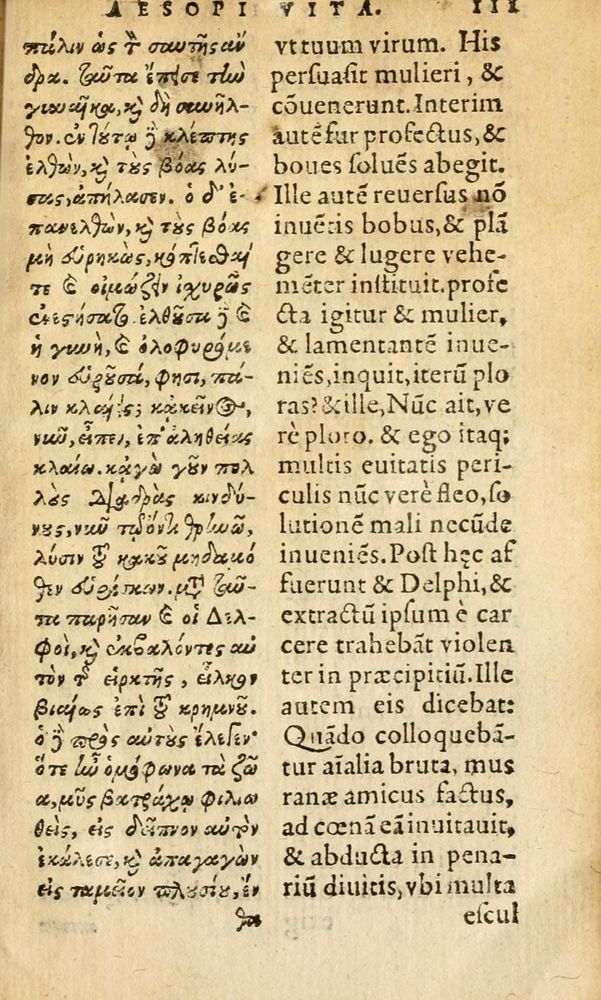 AESOPI VITA. III
πάλιν ὡς τὸν σαυτῆς ἄν
δρα. ταῦτα ἔπεισε τὴν
γυναῖκα, καὶ δὴ συνῆλ-
θον. ἐν τούτῳ δὲ κλέπτης
ἐλθὼν, καὶ τοὺς βόας λύ-
σας, ἀπήλασεν. ὁ δ' ἐ-
πανελθὼν, καὶ τοὺς βόας
μὴ εὑρηκὼς, κόπτεσθαί
τε καὶ οἰμώζειν ἰχυρῶς
ἐνεστήσατο. ἐλθοῦσα δὲ καὶ
ἡ γυνὴ, καὶ ὀλοφυρόμε
νον εὑροῦσα, φησι, πά-
λιν κλαίεις; κἀκεῖνος,
νῦν, εἶπεν, ἐπ' ἀληθείας
κλαίω. κἀγὼ γοῦν πολ
λοὺς διαδρὰς κινδύ-
νους, νῦν τῷ ὄντι θρηνῶ,
λύσιν τοῦ κακοῦ μηδαμό
θεν εὑρίσκων. μετὰ ταῦ-
τα παρῆσαν καὶ οἱ Δελ-
φοὶ, καὶ ἐκβαλόντες αὐ
τὸν τῆς εἱρκτῆς, εἷλκον
βιαίως ἐπὶ τοῦ κρημνοῦ.
ὁ δὲ πρὸς αὐτοὺς ἔλεγεν·
ὅτε ἦν ὁμόφωνα τὰ ζῶ
α, μῦς βατράχῳ φιλιω
θεὶς, εἰς δεῖπνον αὐτὸν
ἐκάλεσε, καὶ ἀπαγαγὼν
εἰς ταμεῖον πλουσίου, ἔν
θα
vt tuum virum. His
perſuaſit mulieri, &
cōuenerunt. Interim
autē fur profectus, &
boues ſoluēs abegit.
Ille autē reuerſus nō
inuētis bobus, & plā
gere & lugere vehe-
mēter inſtituit. profe
cta igitur & mulier,
& lamentantē inue-
niēs, inquit, iterū plo
ras? & ille, Nūc ait, ve
rè ploro. & ego itaq;
multis euitatis peri-
culis nūc verè fleo, ſo
lutionē mali necūde
inueniēs. Poſt hęc af
fuerunt & Delphi, &
extractū ipſum è car
cere trahebāt violen
ter in præcipitiū. Ille
autem eis dicebat:
Quādo colloquebā-
tur aīalia bruta, mus
ranæ amicus factus,
ad cœnā eā inuitauit,
& abducta in pena-
riū diuitis, vbi multa
eſcul